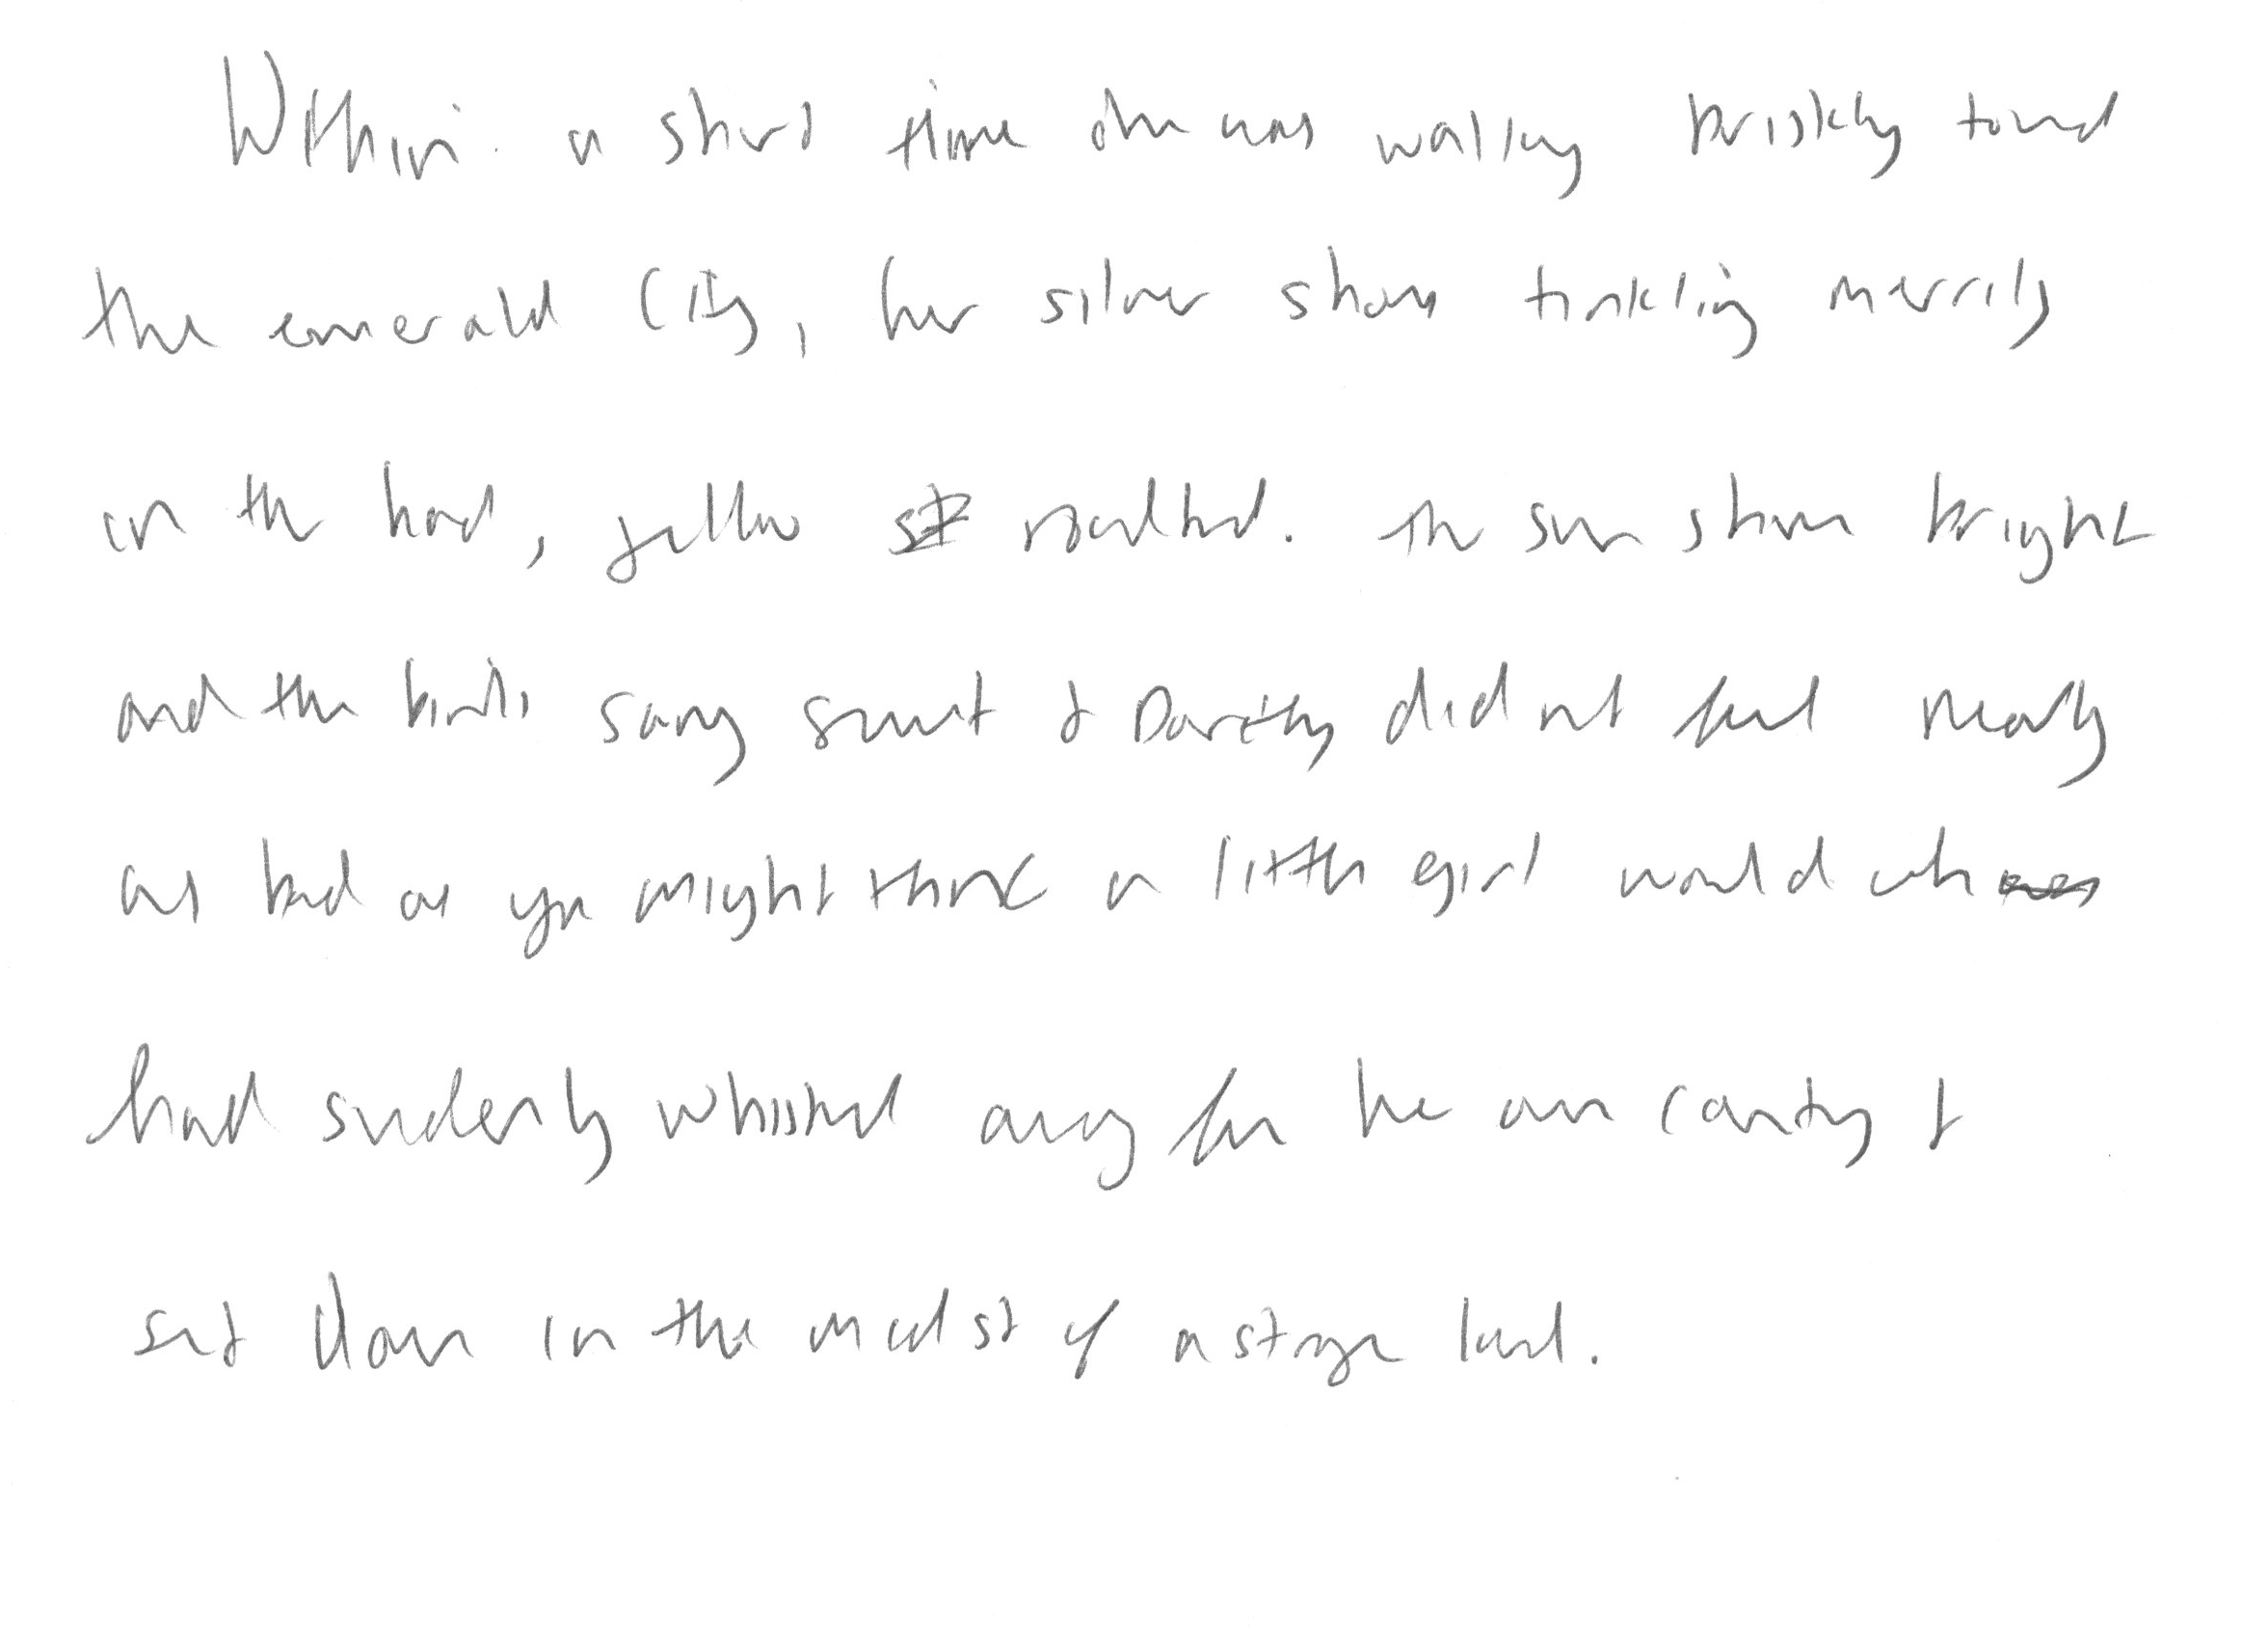 Within a short time she was walking briskly toward
the emerald City, her silver shoes tinkling merrily
on the hard, yellow roadbed. The sun shone bright
and the birds sang sweet & Dorothy did not feel nearly
as bad as you might think a little girl would who
had suddenly whisked away from her own country &
set down in the midst of a strange land.